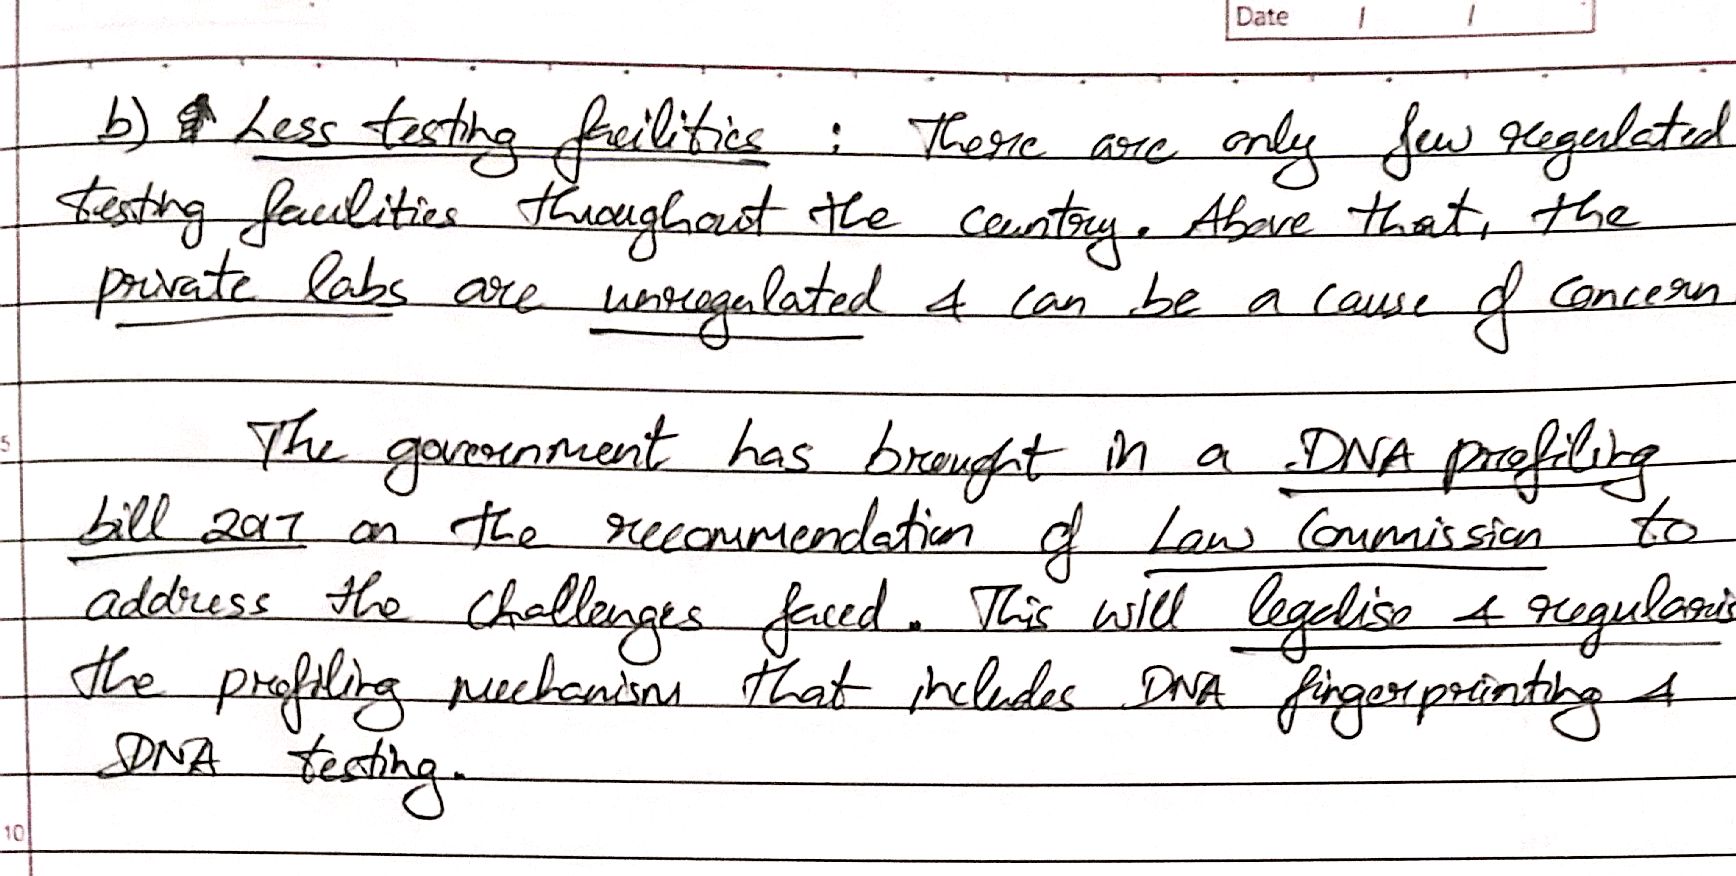 Date / /
b) Less testing facilities : There are only few regulated
testing facilities throughout the country. Above that, the
private labs are unregulated & can be a cause of concern
5
The government has brought in a DNA profiling
bill 2017 on the recommendation of Law Commission to
address the challenges faced. This will legalise & regularis
the profiling mechanism that includes DNA fingerprinting &
DNA testing.
10